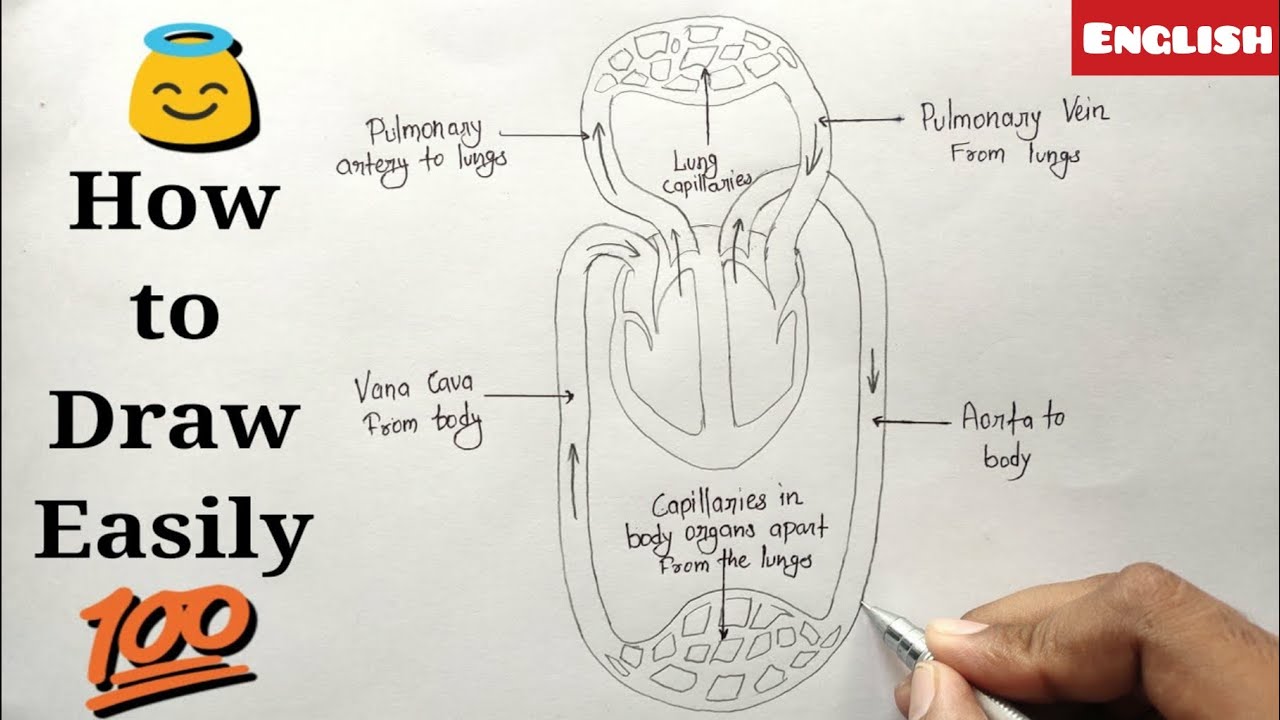 ENGLISH
How
to
Draw
Easily
100
Pulmonary
artery to lungs
Lung
capillaries
Pulmonary Vein
From lungs
Vana Cava
From body
Aorta to
body
Capillaries in
body organs apart
From the lunges